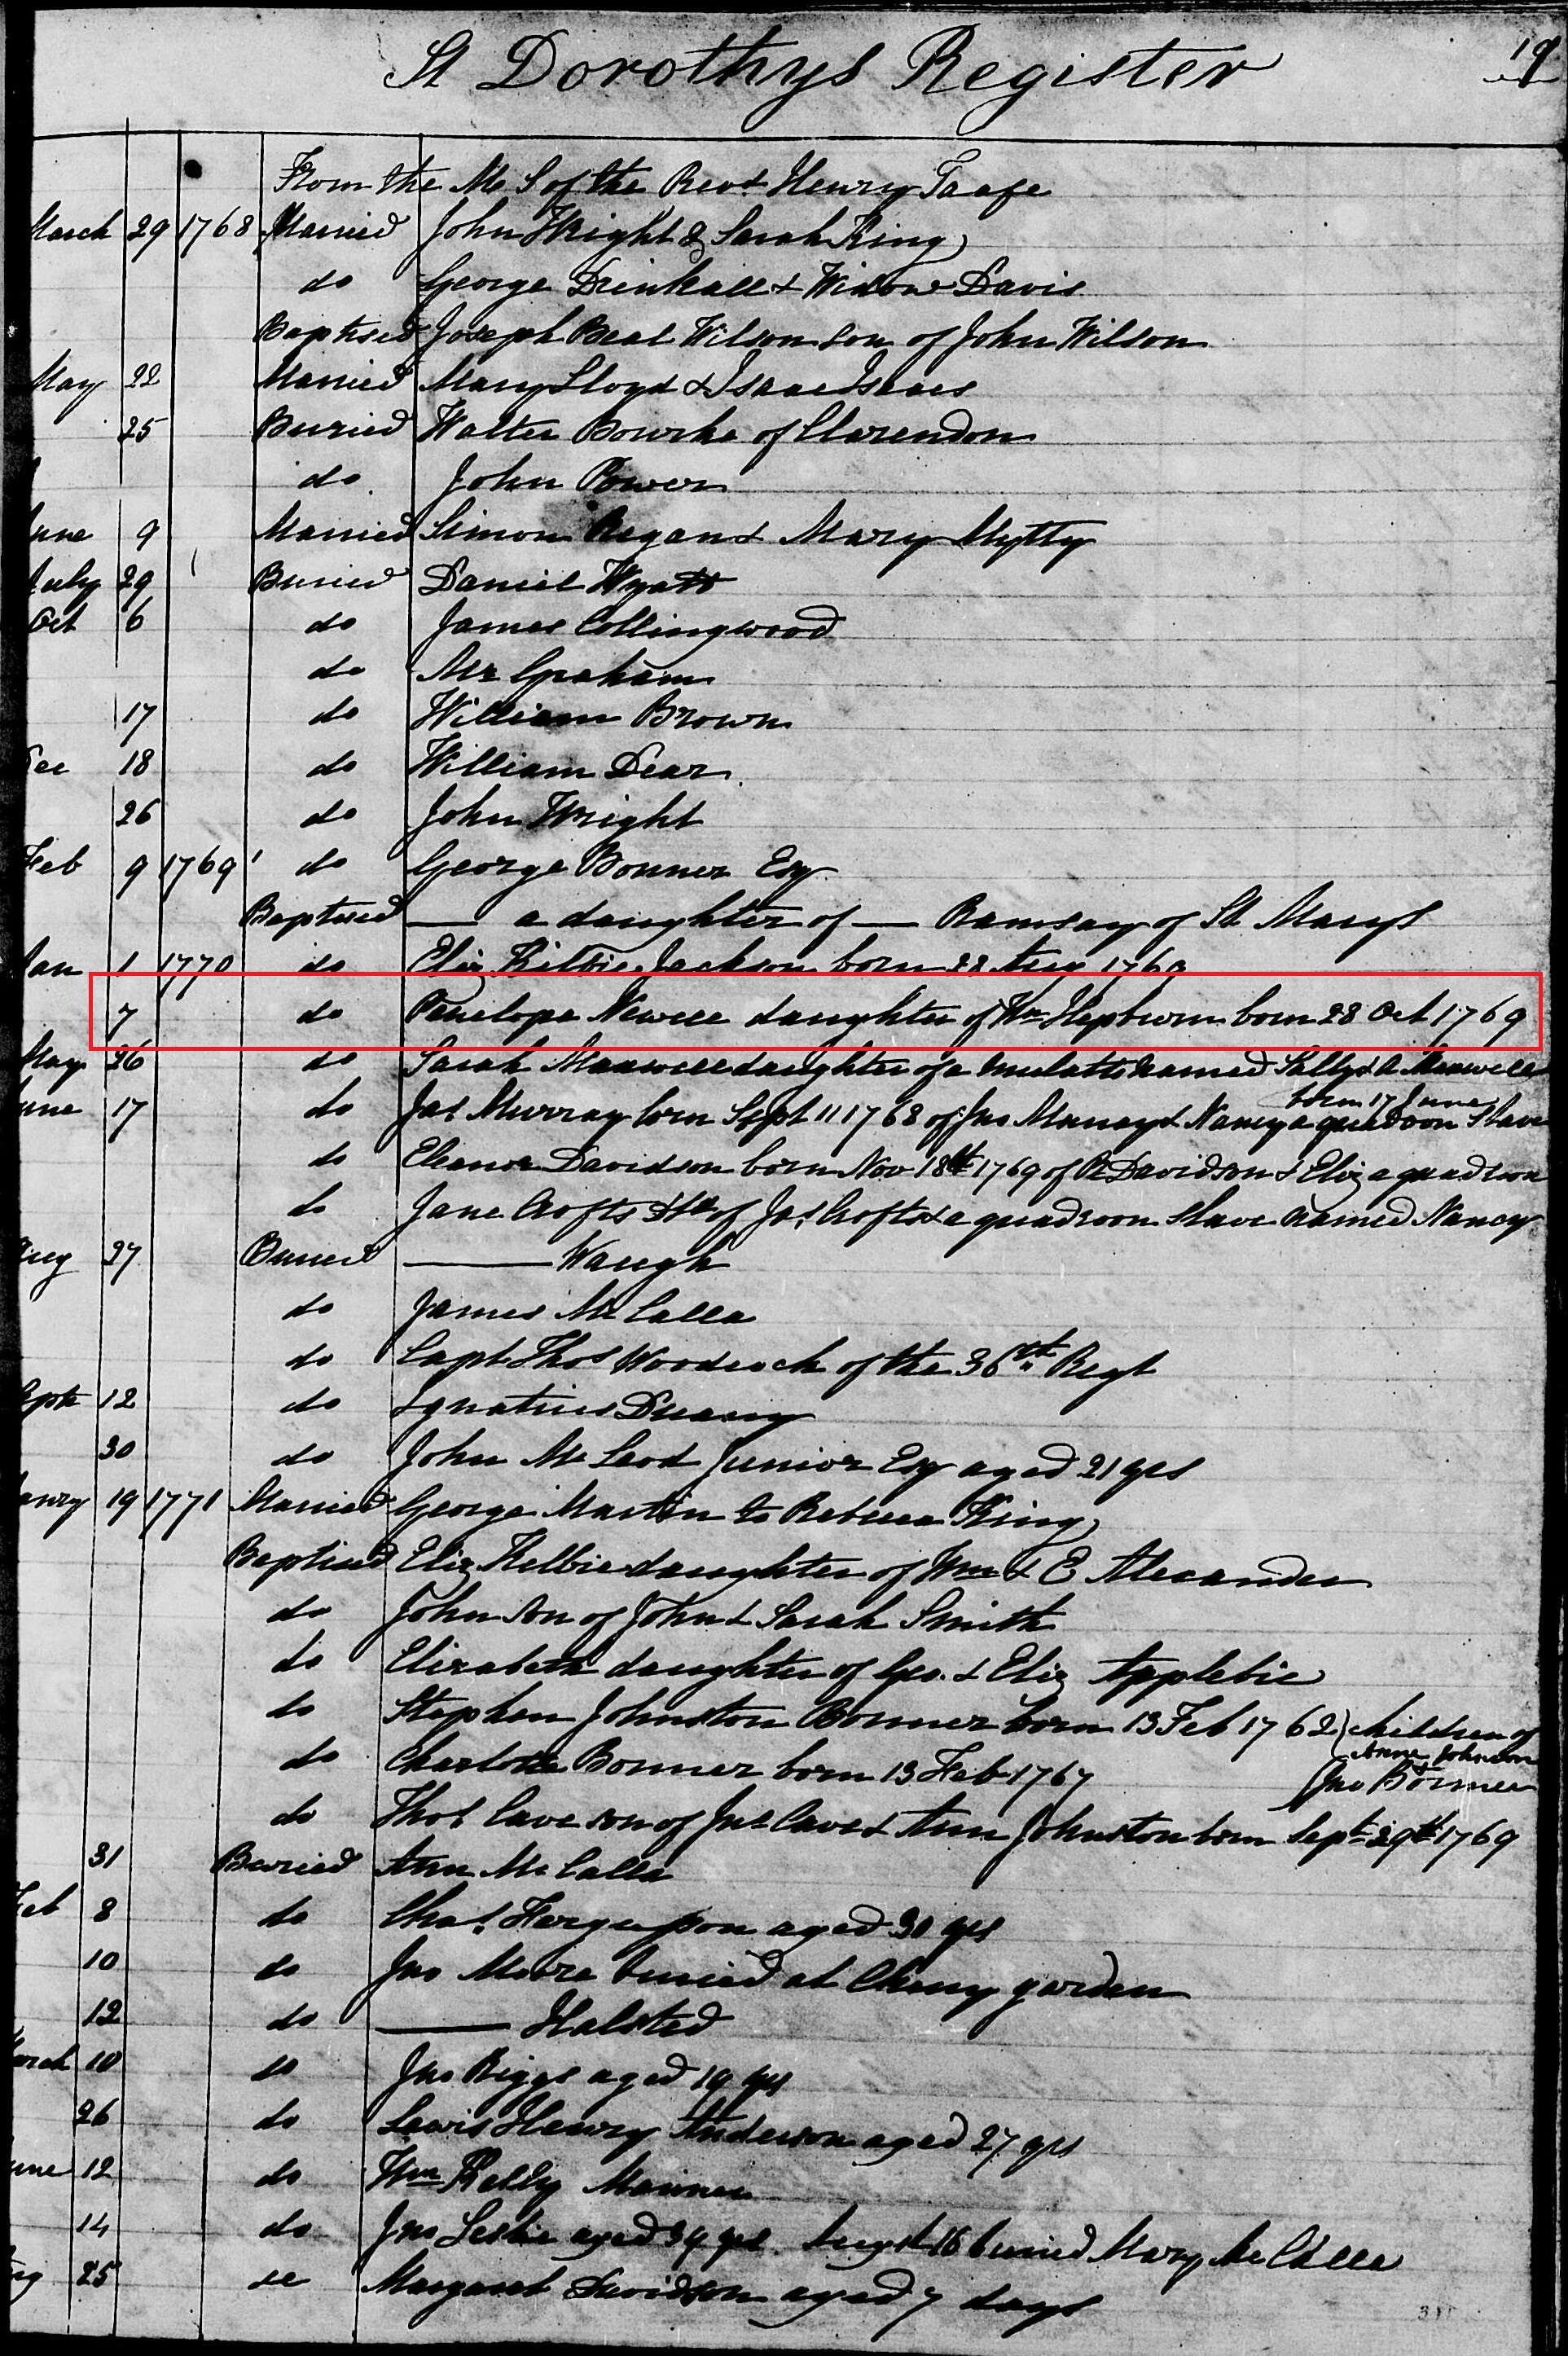 19
St Dorothys Register
From the M S of the Revd Henry Taafe
March 29 1768 Married John Wright & Sarah King
do George Drinkall & Widow Davis
Baptised Joseph Beal Wilson son of John Wilson
May 22 Married Mary Lloyd & Isaac Isaacs
25 Buried Walter Bourke of Clarendon
do John Power
une 9 Married Simon Regan & Mary Mytty
July 29 Buried Daniel Wyatt
Oct 6 do James Collingwood
do Mr Graham
17 do William Brown
Dec 18 do William Dear
26 do John Wright
Feb 9 1769 do George Bonner Esq
Baptised — a daughter of — Ramsay of St Marys
Jan 1 1770 do Eliz Kelbie Jackson born 28 Aug 1769
7 do Penelope Newell daughter of Wm Hepburn born 28 Oct 1769
May 26 do Sarah Maxwell daughter of a mulatto named Sally & A Maxwell
born 17 June
une 17 do Jas Murray born Sept 11 1768 of Jno Murray & Nancy a quadroon Slave
do Eleanor Davidson born Nov 18th 1769 of R Davidson & Eliz a quadroon
do Jane Crofts Dtr of Jas Crofts & a quadroon Slave named Nancy
Aug 27 Buried — Waugh
do James McCalla
do Capt Thos Woodcock of the 36th Regt
Sept 12 do Ignatius Duany
30 do John McLeod Junior Esq aged 21 yrs
anry 19 1771 Married George Martin to Rebecca King
Baptised Eliz Kelbie daughter of Wm & E Alexander
do John son of John & Sarah Smith
do Elizabeth daughter of Geo. & Eliz Applebie
do Stephen Johnston Bonner born 13 Feb 1762 } children of
Anne Johnson
do Charlotte Bonner born 13 Feb 1767 Jno Bonner
do Thos Cave son of Jno Cave & Ann Johnston born Sept 29th 1769
31 Buried Ann McCalla
Feb 8 do Chas. Fergusson aged 30 yrs
10 do Jno Moore buried at Cherry garden
12 do — Halsted
arch 10 do Jno Biggs aged 19 yrs
26 do Lewis Henry Anderson aged 27 yrs
une 12 do Wm Kelly Mariner
14 do Jno Leslie aged 34 yrs. Augst 16 buried Mary McCalla
ug 25 do Margaret Davidson aged 7 days